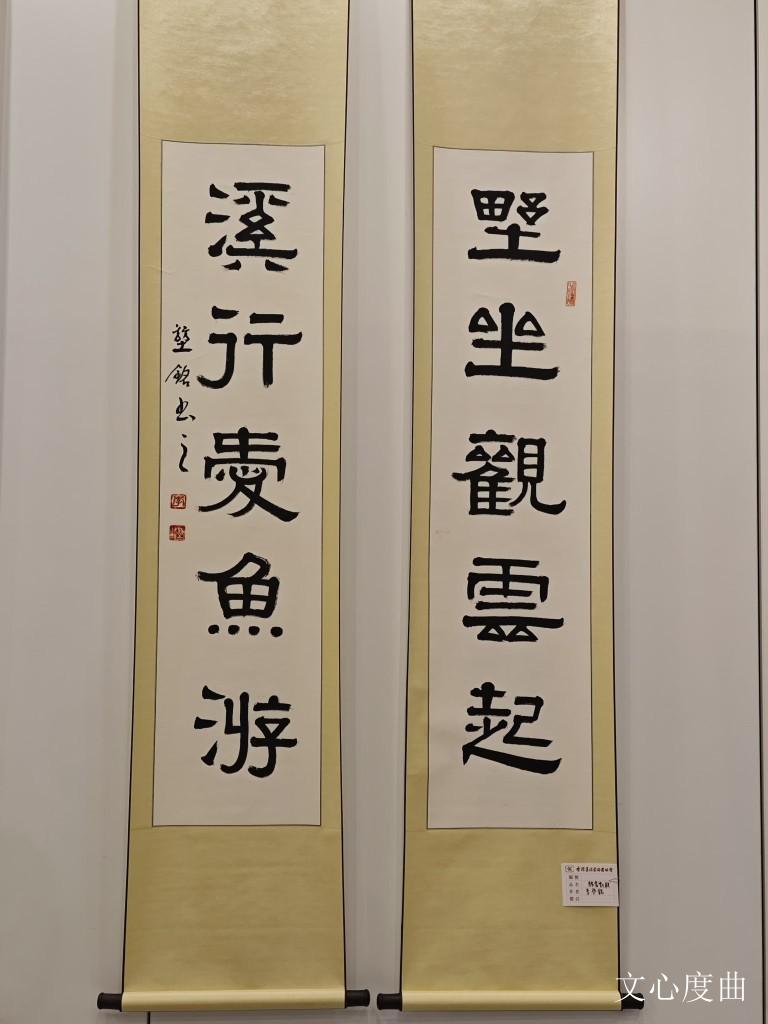 野坐觀雲起
溪行愛魚游
塈銘书之
文心度曲